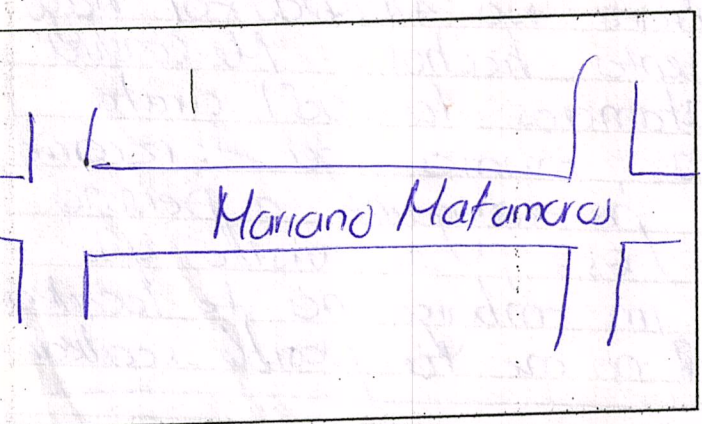 Mariano Matamoros